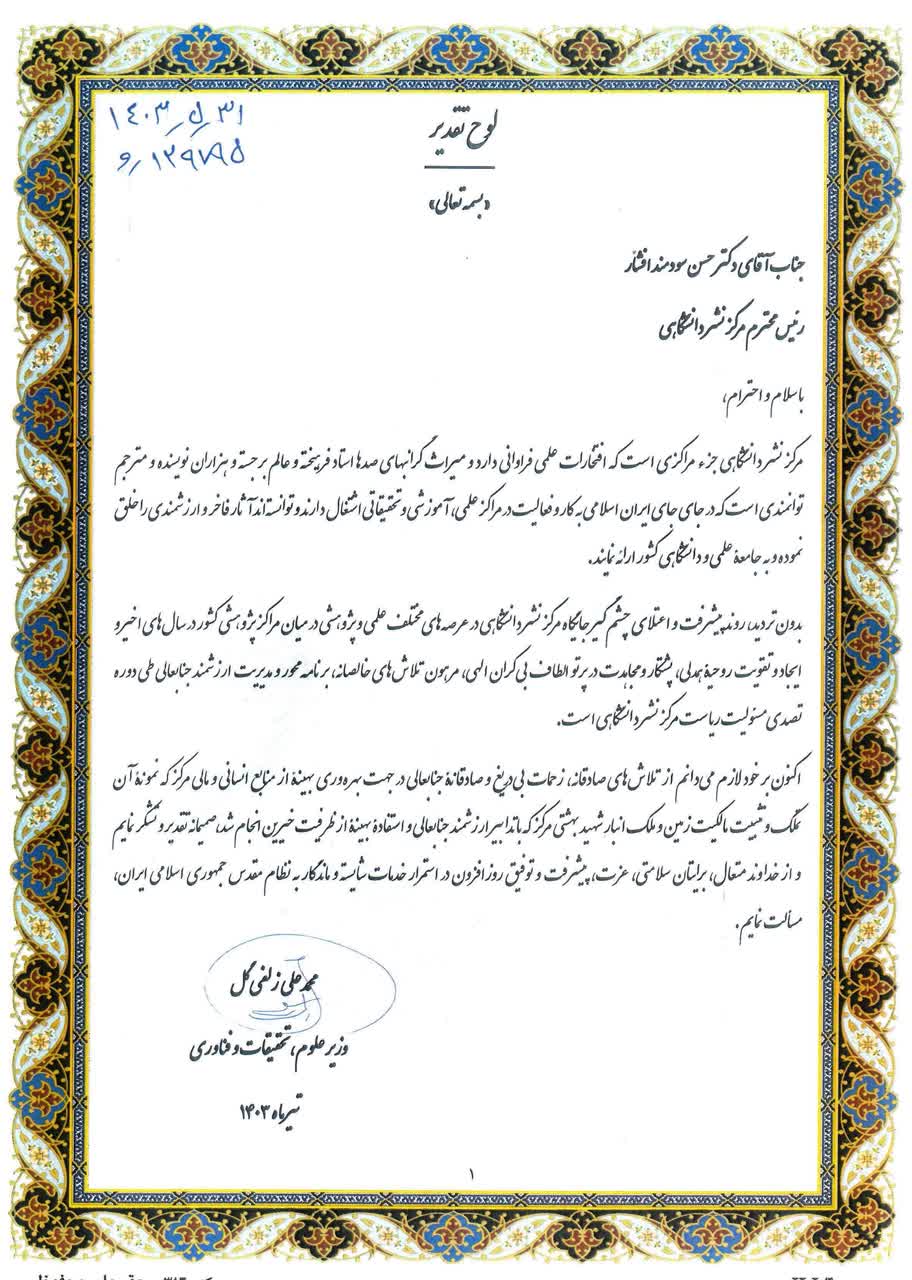 ۱۴۰۳٫۵٫۳۱
۱۲۹۷۸۵٫و
لوح تقدیر
«بسمه تعالی»
جناب آقای دکتر حسن سودمند افشار
رئیس محترم مرکز نشر دانشگاهی
با سلام و احترام،
مرکز نشر دانشگاهی جزء مراکزی است که افتخارات علمی فراوانی دارد و میراث گرانبهای صدها استاد فریخته و عالم برجسته و هزاران نویسنده و مترجم
توانمندی است که در جای جای ایران اسلامی به کار و فعالیت در مراکز علمی، آموزشی و تحقیقاتی اشتغال دارند و توانسته‌اند آثار فاخر و ارزشمندی را خلق
نموده و به جامعۀ علمی و دانشگاهی کشور ارائه نمایند.
بدون تردید، روند پیشرفت و اعتلای چشم‌گیر جایگاه مرکز نشر دانشگاهی در عرصه‌های مختلف علمی و پژوهشی در میان مراکز پژوهشی کشور در سال‌های اخیر و
ایجاد و تقویت روحیۀ همدلی، پشتکار و مجاهدت در پرتو الطاف بی‌کران الهی، مرهون تلاش‌های خالصانه، برنامه محور و مدیریت ارزشمند جنابعالی طی دوره
تصدی مسئولیت ریاست مرکز نشر دانشگاهی است.
اکنون بر خود لازم می‌دانم از تلاش‌های صادقانه، زحمات بی‌دریغ و صادقانۀ جنابعالی در جهت بهره‌وری بهینۀ از منابع انسانی و مالی مرکز که نمونۀ آن
تملک و تثبیت مالکیت زمین و ملک انبار شهید بهشتی مرکز که با تدابیر ارزشمند جنابعالی و استفادۀ بهینۀ از ظرفیت خیرین انجام شد، صمیمانه تقدیر و تشکر نمایم
و از خداوند متعال، برایتان سلامتی، عزت، پیشرفت و توفیق روزافزون در استمرار خدمات شایسته و ماندگار به نظام مقدس جمهوری اسلامی ایران،
مسألت نمایم.
محمدعلی زلفی‌گل
وزیر علوم، تحقیقات و فناوری
تیرماه ۱۴۰۳
۱